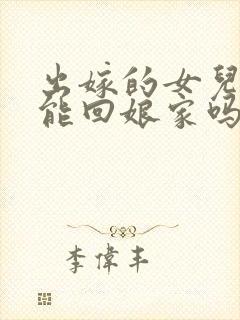 出嫁的女兒
能回娘家吗
李偉丰